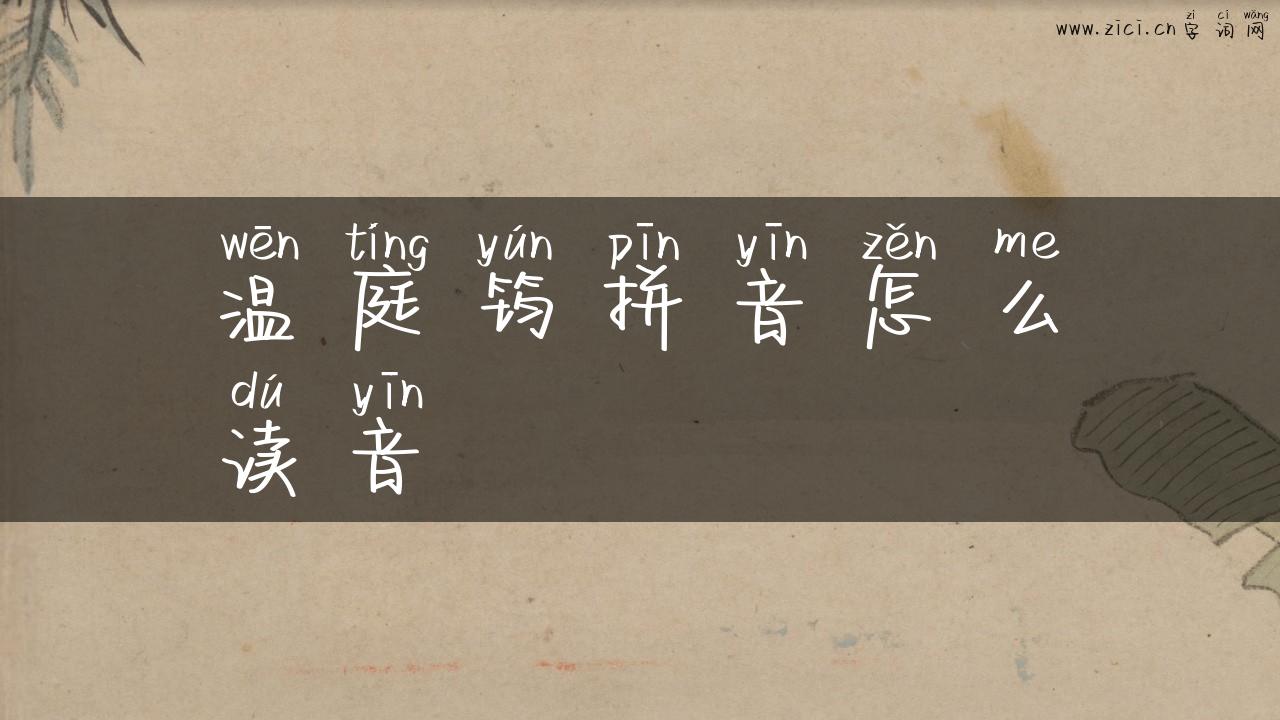 zì cí wǎng
www.zici.cn 字词网
wēn tíng yún pīn yīn zěn me
温庭筠拼音怎么
dú yīn
读音